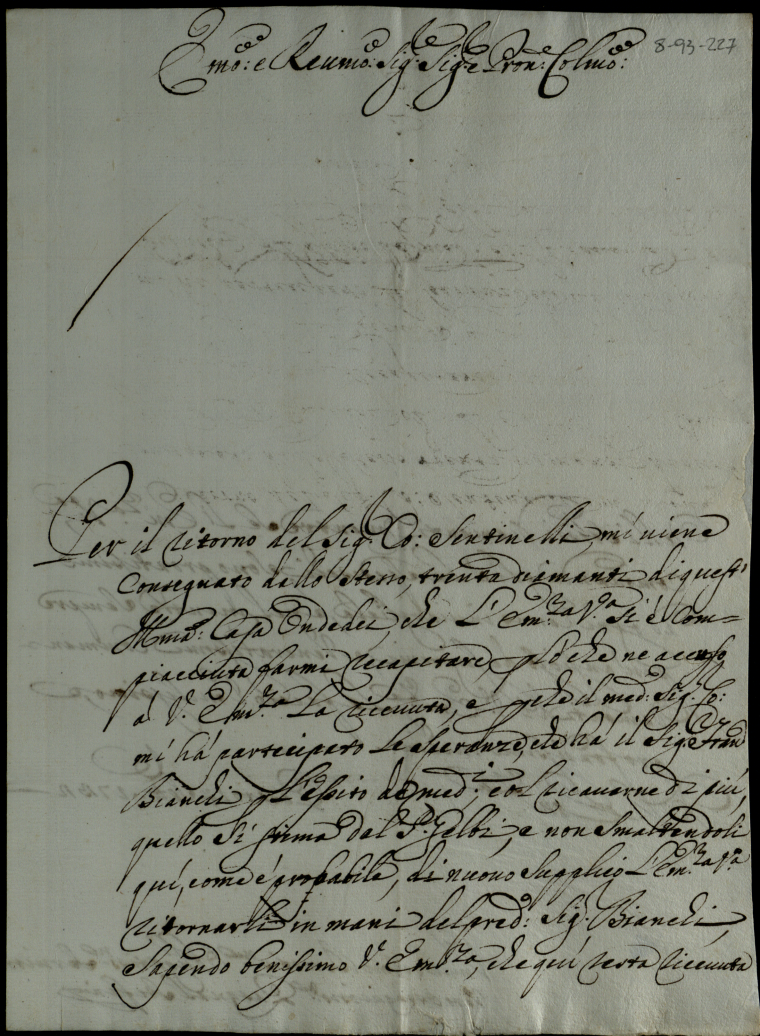 8-93-227
Emo: e Reumo: Sig:re Sig:re e Pron: Colmo:
Per il ritorno del Sig: Co: Sentinelli, mi uiene
Consegnato dallo stesso, trenta diamanti di questi
Casa Ondedei, che L'Em:za V:a si è com=
piacciuta farmi recapitare, che ne accuso
á V: Em:za La riceuuta, e il med: Sig: Co:
mi há partecipato Le speranze, che há il Sig:
Bianchi L'essito de med:i, e ricauarne di piú,
quello si stima dal e non smaltendoli
qui, come é probabile, di nuouo supplico L'Em:za V:ra
ritornarli in mani del pred: Sig: Bianchi,
Sapendo benissimo V: Em:za, che qui resta riceuuta